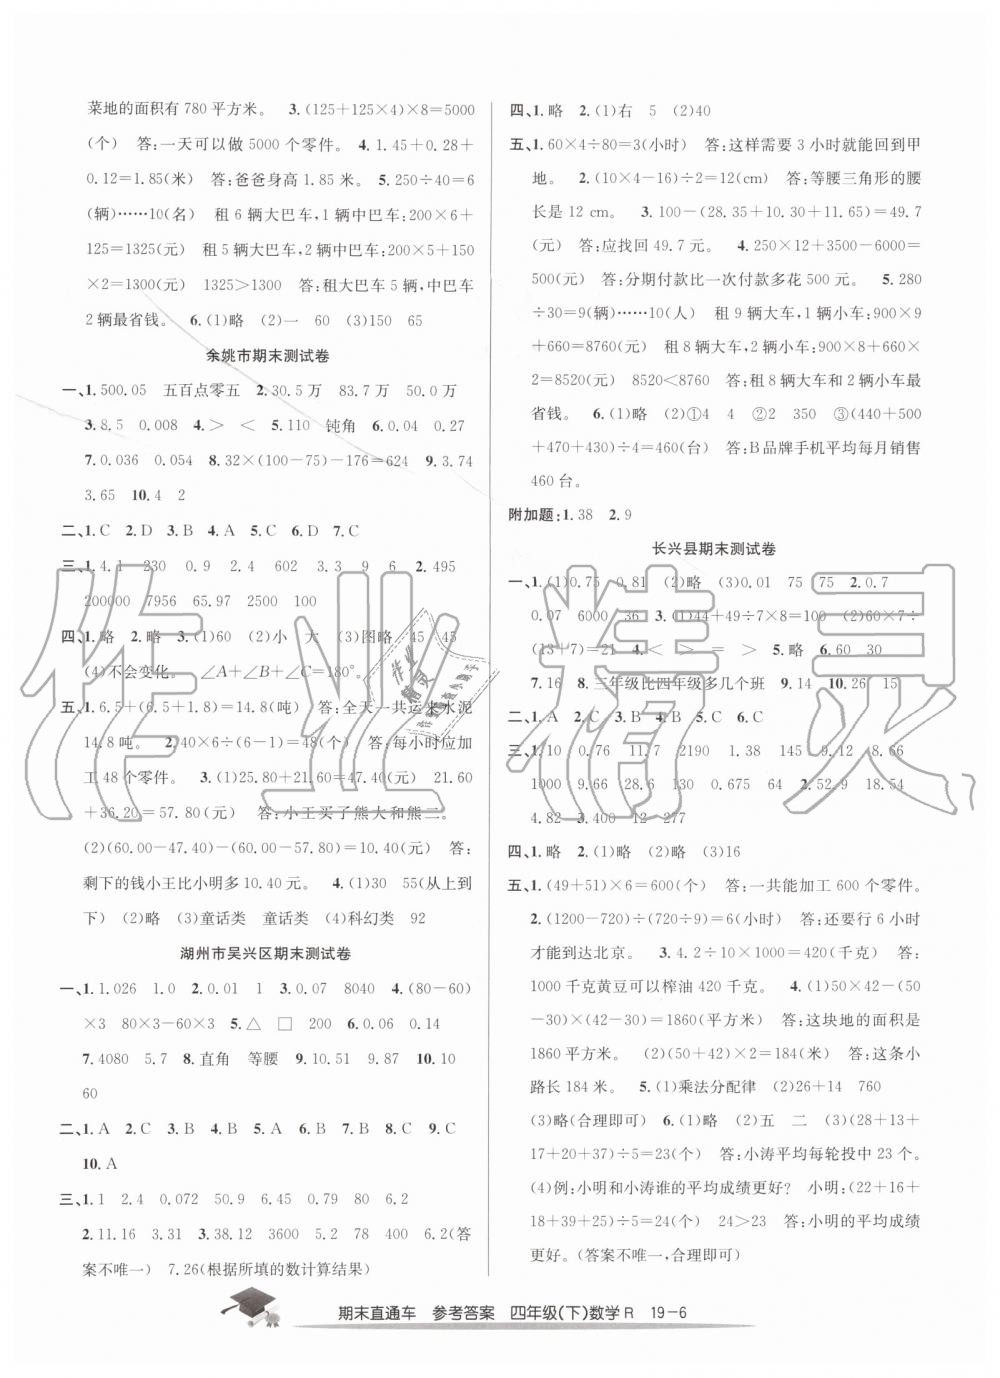 菜地的面积有 780 平方米。 3.(125+125×4)×8=5000
(个) 答:一天可以做 5000 个零件。 4.1.45+0.28+
0.12=1.85(米) 答:爸爸身高 1.85 米。 5.250÷40=6
(辆)……10(名) 租 6 辆大巴车,1 辆中巴车:200×6+
125=1325(元) 租 5 辆大巴车,2 辆中巴车:200×5+150
×2=1300(元) 1325>1300 答:租大巴车 5 辆,中巴车
2 辆最省钱。 6.(1)略 (2)一 60 (3)150 65
余姚市期末测试卷
一、1.500.05 五百点零五 2.30.5 万 83.7 万 50.0 万
3.8.5 0.008 4.> < 5.110 钝角 6.0.04 0.27
7.0.036 0.054 8.32×(100-75)-176=624 9.3.74
3.65 10.4 2
二、1.C 2.D 3.B 4.A 5.C 6.D 7.C
三、1.4.1 230 0.9 2.4 602 0.3 9 6 2.495
200000 7956 65.97 2500 100
四、1.略 2.略 3.(1)60 (2)小 大 (3)图略 45 45
(4)不会变化。 ∠A+∠B+∠C=180°。
五、1.6.5+(6.5+1.8)=14.8(吨) 答:全天一共运来水泥
14.8吨。 2.40×6÷(6-1)=48(个) 答:每小时应加
工 48 个零件。 3.(1)25.80+21.60=47.40(元) 21.60
+36.20=57.80(元) 答:小王买了熊大和熊二。
(2)(60.00-47.40)-(60.00-57.80)=10.40(元) 答:
剩下的钱小王比小明多 10.40 元。 4.(1)30 55(从上到
下) (2)略 (3)童话类 童话类 (4)科幻类 92
湖州市吴兴区期末测试卷
一、1.1.026 1.0 2.0.01 1 3.0.07 8040 4.(80-60)
×3 80×3-60×3 5.△ □ 200 6.0.06 0.14
7.4080 5.7 8.直角 等腰 9.10.51 9.87 10.10
60
二、1.A 2.C 3.B 4.B 5.A 6.B 7.C 8.C 9.C
10.A
三、1.1 2.4 0.072 50.9 6.45 300 80 6.2
2.11.16 3.31 3.38.12 3600 5.2 78 400 6.2(答
案不唯一) 7.26(根据所填的数计算结果)
四、1.略 2.(1)右 5 (2)40
五、1.60×4÷80=3(小时) 答:这样需要 3 小时就能回到甲
地。 2.(10×4-16)÷2=12(cm) 答:等腰三角形的腰
长是 12 cm。 3.100-(28.35+10.30+11.65)=49.7
(元) 答:应找回 49.7 元。 4.250×12+3500-6000=
500(元) 答:分期付款比一次付款多花 500 元。 5.280
÷30=9(辆)……10(人) 租 9 辆大车,1 辆小车:900×9
+660=8760(元) 租 8 辆大车,2 辆小车:900×8+660×
2=8520(元) 8520<8760 答:租 8 辆大车和 2 辆小车最
省钱。 6.(1)略 (2)①4 4 ②2 350 ③(440+500
+470+430)÷4=460(台) 答:B品牌手机平均每月销售
460 台。
附加题:1.38 2.9
长兴县期末测试卷
一、1.(1)0.75 0.81 (2)略 (3)0.01 75 75 2.0.7
0.07 6000 36 3.(1)44+49÷7×8=100 (2)60×7÷
(13+7)=21 4.< > = > 5.略 6.60 30
7.16 8.三年级比四年级多几个班 9.14 10.26 15
二、1.A 2.C 3.B 4.B 5.C 6.C
三、1.10 0.76 11.7 2190 1.38 145 9.12 8.66
1000 9.66 28.6 130 0.675 64 2.52.9 18.54
4.82 3.400 12 277
四、1.略 2.(1)略 (2)略 (3)16
五、1.(49+51)×6=600(个) 答:一共能加工 600 个零件。
2.(1200-720)÷(720÷9)=6(小时) 答:还要行 6 小时
才能到达北京。 3.4.2÷10×1000=420(千克) 答:
1000 千克黄豆可以榨油 420 千克。 4.(1)50×42-(50
-30)×(42-30)=1860(平方米) 答:这块地的面积是
1860 平方米。 (2)(50+42)×2=184(米) 答:这条小
路长 184 米。 5.(1)乘法分配律 (2)26+14 760
(3)略(合理即可) 6.(1)略 (2)五 二 (3)(28+13+
17+20+37)÷5=23(个) 答:小涛平均每轮投中 23 个。
(4)例:小明和小涛谁的平均成绩更好? 小明:(22+16+
18+31+33)÷5=24(个) 24>23 答:小明的平均成绩
更好。(答案不唯一,合理即可)
期末直通车 参考答案 四年级(下)数学 R 19-6
作业精灵